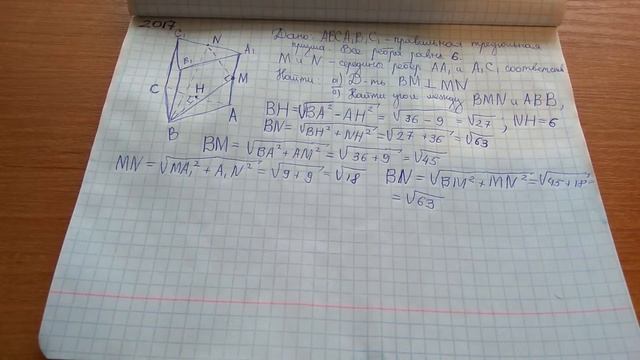 2017
C₁ N A₁ B₁ M C H A B
Дано: ABCA₁B₁C₁ - правильная треугольная
призма. Все ребра равны 6.
M и N - середины ребер AA₁ и A₁C₁ соответств
Найти: а) Д-ть BM ⊥ MN
б) Найти угол между BMN и ABB₁
BH = √BA² - AH² = √36 - 9 = √27, NH = 6
BN = √BH² + NH² = √27 + 36 = √63
BM = √BA² + AM² = √36 + 9 = √45
MN = √MA₁² + A₁N² = √9 + 9 = √18 BN = √BM² + MN² = √45 + 18 =
= √63